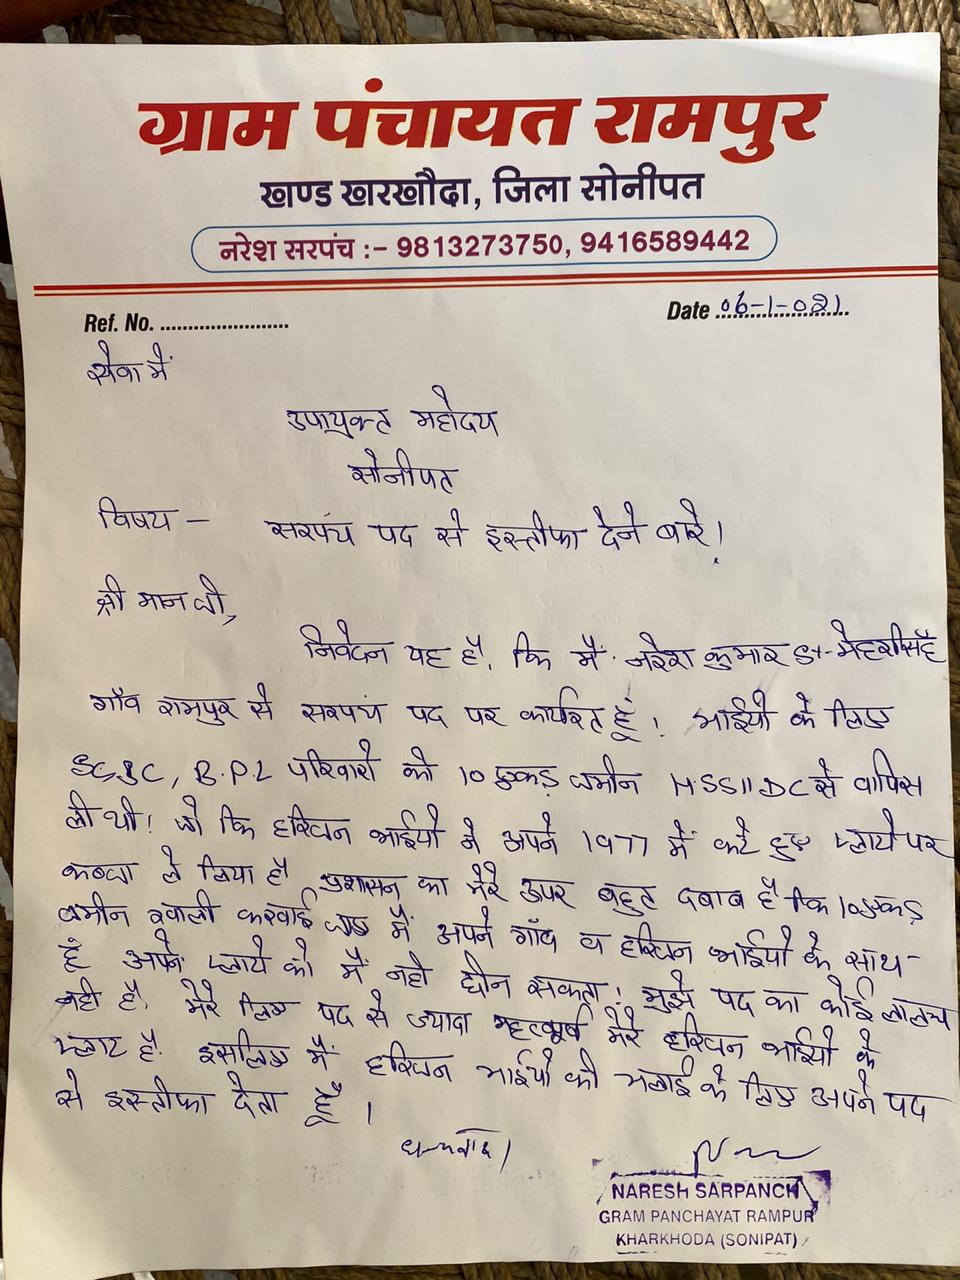 ग्राम पंचायत रामपुर
खण्ड खरखौदा, जिला सोनीपत
नरेश सरपंच :- 9813273750, 9416589442
Ref. No. ........................
Date 06-1-021
सेवा में
उपायुक्त महोदय
सोनीपत
विषय - सरपंच पद से इस्तीफा देने बारे।
श्री मान जी,
निवेदन यह है, कि मैं नरेश कुमार S/- मेहरसिंह
गाँव रामपुर से सरपंच पद पर कार्यरत हूँ। भाईयो के लिए
SC, BC, B.P.L परिवारो की 10 एकड़ जमीन HSSIIDC से वापिस
ली थी! जो कि हरिजन भाईयो ने अपने 1977 में कटे हुए प्लाटो पर
कब्जा ले लिया है प्रशासन का मेरे उपर बहुत दबाव है कि 10 एकड़
जमीन खाली करवाई जाए मैं अपने गाँव व हरिजन भाईयो के साथ-
हूँ अपने प्लाटो को मैं नही छीन सकता! मुझे पद का कोई लालच
नही है, मेरे लिए पद से ज्यादा महत्वपूर्ण मेरे हरिजन भाईयो के
प्लाट है. इसलिए मैं हरिजन भाईयो की भलाई के लिए अपने पद
से इस्तीफा देता हूँ।
धन्यवाद।
NARESH SARPANCH
GRAM PANCHAYAT RAMPUR
KHARKHODA (SONIPAT)